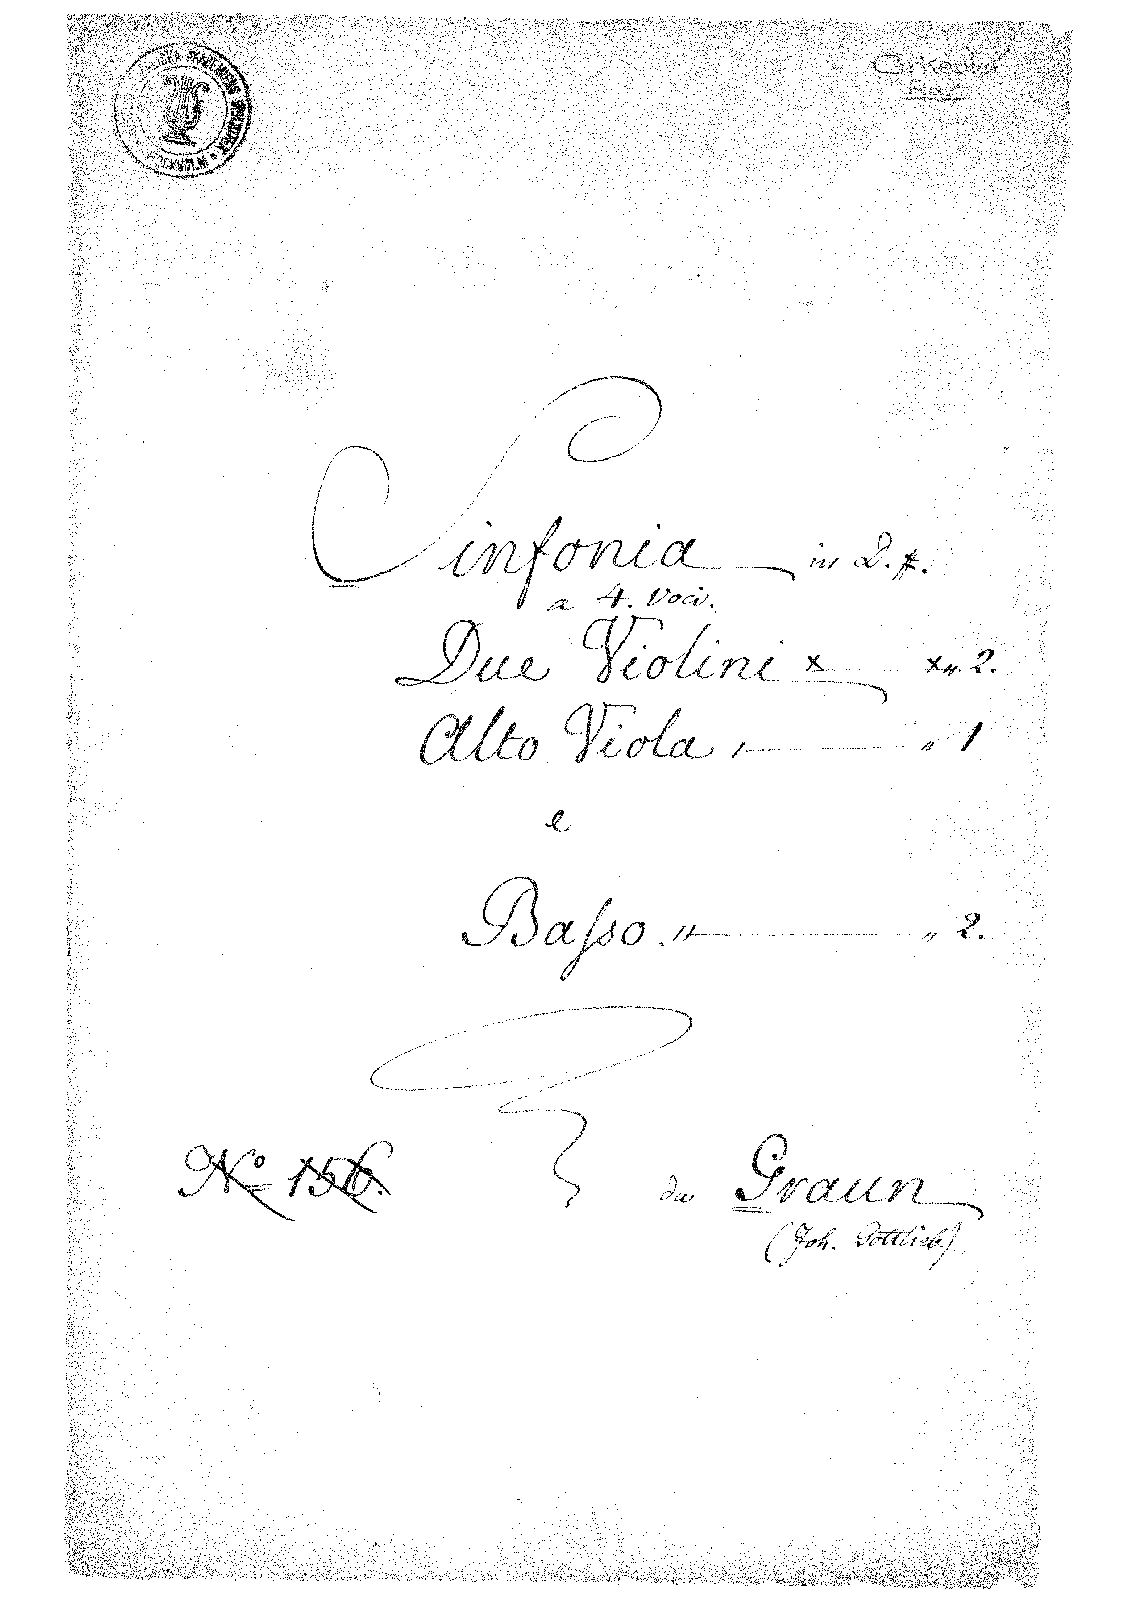 Orkester
Sinfonia in D.#.
a 4. Voci.
Due Violini x x„ 2.
Alto Viola „ 1
e
Baſso „ „ 2.
No 156.
da Graun
(Joh. Gottlieb)